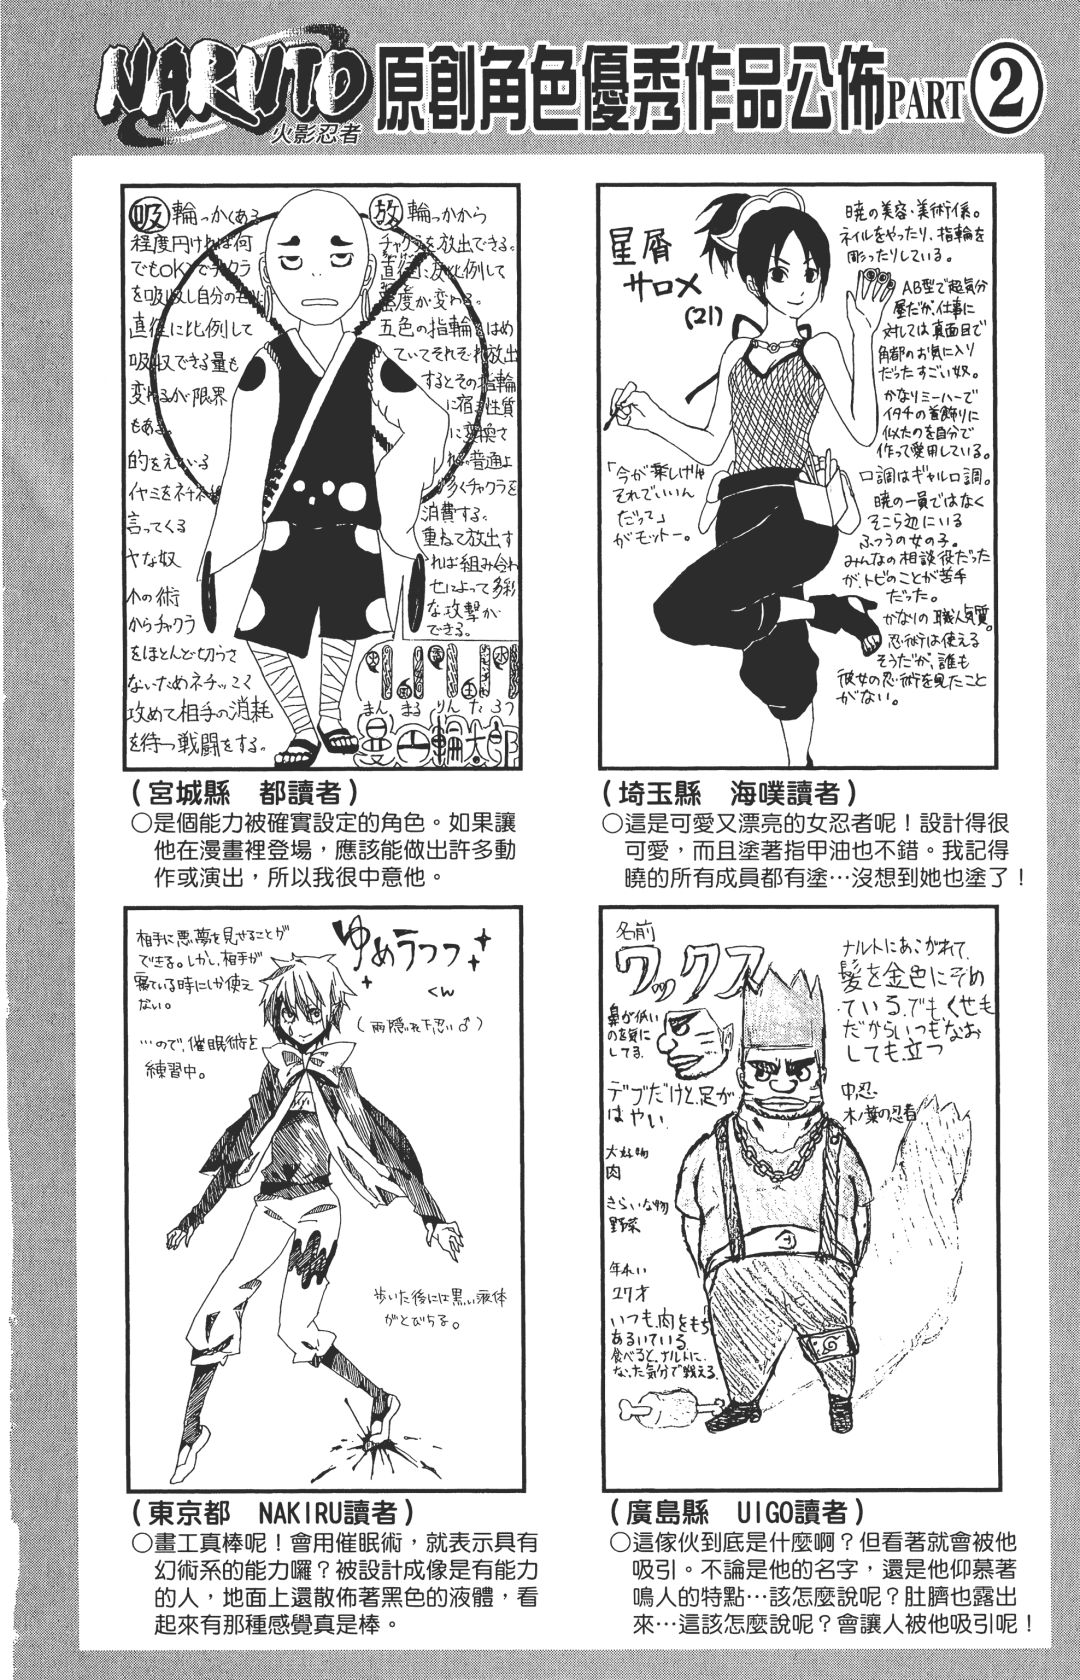 NARUTO
火影忍者
原創角色優秀作品公佈PART②
吸 輪っかくある
程度円ければ何
でもOKでチャクラ
を吸収し自分の
直径に比例して
吸収できる量も
変わるが限界
もある。
的をえている
イヤミをネチネチ
言ってくる
ヤな奴
からチャクラ
をほとんど切らさ
ないためネチッこく
攻めて相手の消耗
を待つ戦闘をする。
放 輪っかから
チャクラを放出できる。
直径に反比例して
密度が変わる。
五色の指輪をはめ
ていてそれぞれ放出
するとその指輪
に宿る性質
に変換さ
普通よ
多くチャクラを
消費する。
重ねて放出す
れば組み合わ
せによって多彩
な攻撃が
できる。
まん まる りん たろう
漫〇輪太郎
(宮城縣 都讀者)
○是個能力被確實設定的角色。如果讓
他在漫畫裡登場，應該能做出許多動
作或演出，所以我很中意他。
星屑
サロメ
(21)
暁の美容・美術係。
ネイルをやったり、指輪を
彫ったりしている。
AB型で超気分
屋だが、仕事に
対しては真面目で
角都のお気に入り
だったすごい奴。
かなりミーハーで
イタチの首飾りに
似たのを自分で
作って愛用している。
口調はギャル口調。
暁の一員ではなく
そこら辺にいる
ふつうの女の子。
みんなの相談役だった
が、トビのことが苦手
だった。
かなりの職人気質。
忍術は使える
そうだが、誰も
彼女の忍術を見たこと
がない。
「今が楽しけりゃ
それでいいん
だって」
がモットー。
(埼玉縣 海噗讀者)
○這是可愛又漂亮的女忍者呢！設計得很
可愛，而且塗著指甲油也不錯。我記得
曉的所有成員都有塗…沒想到她也塗了！
相手に悪夢を見せることが
できる。しかし、相手が
寝ている時にしか使え
ない。
…ので、催眠術を
練習中。
ゆめうつつ
くん
(雨隠れ下忍♂)
歩いた後には黒い液体
がとびちる。
(東京都 NAKIRU讀者)
○畫工真棒呢！會用催眠術，就表示具有
幻術系的能力囉？被設計成像是有能力
的人，地面上還散佈著黑色的液體，看
起來有那種感覺真是棒。
名前
ワックス
鼻が低い
のを気に
してる
デブだけど、足が
はやい
大好物
肉
きらいな物
野菜
年れい
27才
いつも、肉をもち
あるいている
食べると、ナルトに
なった気分で戦える
ナルトにあこがれて、
髪を金色にそめ
ている。でもくせも
だからいつもなお
しても立つ
中忍
木ノ葉の忍者
(廣島縣 UIGO讀者)
○這傢伙到底是什麼啊？但看著就會被他
吸引。不論是他的名字，還是他仰慕著
鳴人的特點…該怎麼說呢？肚臍也露出
來…這該怎麼說呢？會讓人被他吸引呢！